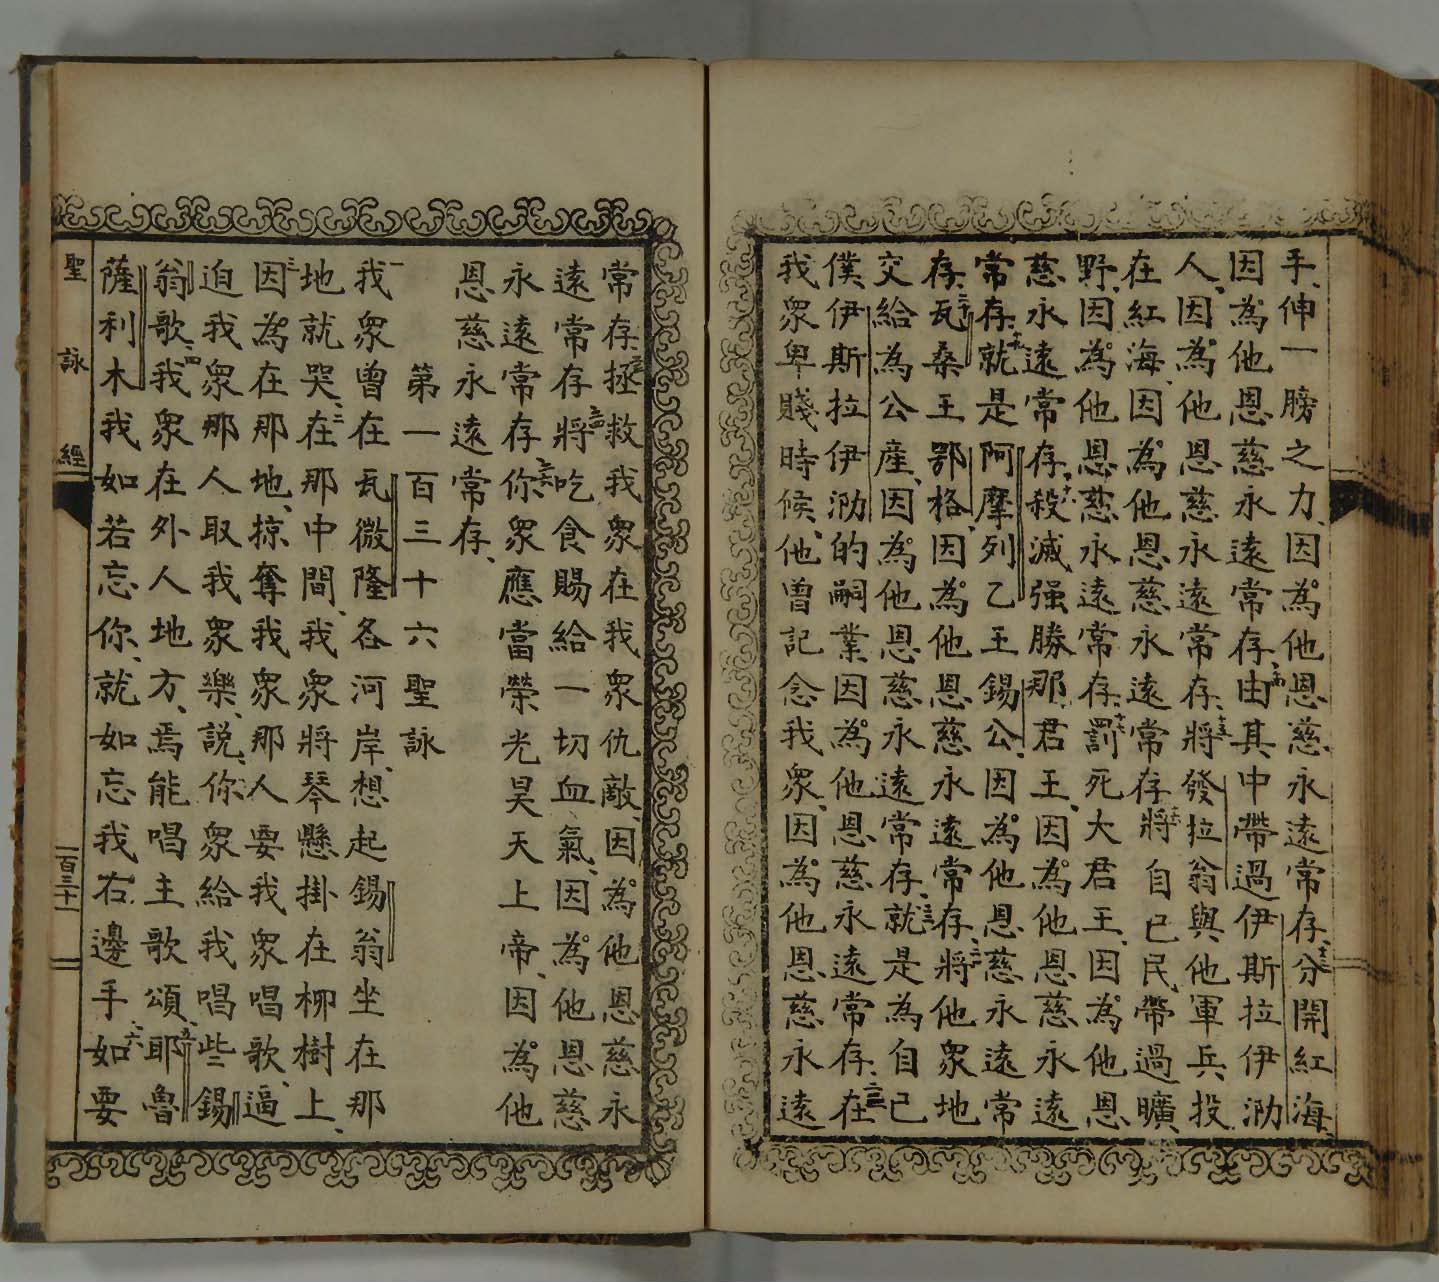 手、伸一膀之力、因為他恩慈永遠常存、十三分開紅海
因為他恩慈永遠常存、十四由其中帶過伊斯拉伊泐
人、因為他恩慈永遠常存、十五將發拉翁與他軍兵、投
在紅海、因為他恩慈永遠常存、十六將自己民、帶過曠
野、因為他恩慈永遠常存、十七罰死大君王、因為他恩
慈永遠常存、十八殺滅强勝那君王、因為他恩慈永遠
常存、十九就是阿摩列乙王錫公、因為他恩慈永遠常
存、二十瓦桑王鄂格、因為他恩慈永遠常存、二一將他衆地
交給為公產、因為他恩慈永遠常存、二二就是為自己
僕伊斯拉伊泐的嗣業因為他恩慈永遠常存、二三在
我衆卑賤時候、他曾記念我衆、因為他恩慈永遠
常存、二四拯救我衆在我衆仇敵、因為他恩慈永
遠常存、二五將吃食賜給一切血氣、因為他恩慈
永遠常存、二六你衆應當榮光昊天上帝、因為他
恩慈永遠常存、
第一百三十六聖詠
一我衆曾在瓦微隆各河岸、想起錫翁坐在那
地就哭、二在那中間、我衆將琴懸掛在柳樹上、
三因為在那地、掠奪我衆那人要我衆唱歌、逼
迫我衆那人取我衆樂、說、你衆給我唱些錫
翁歌、四我衆在外人地方、焉能唱主歌頌、五耶魯
薩利木我如若忘你、就如忘我右邊手、六如要
聖詠經
一百三十一